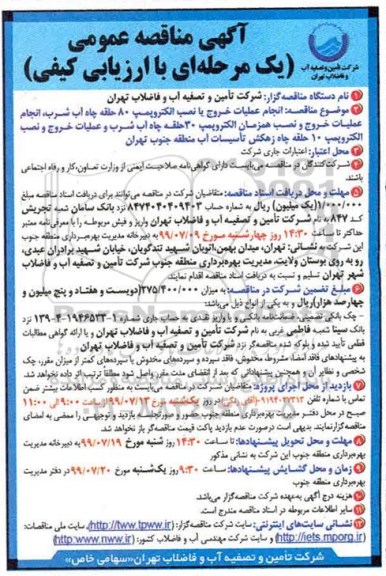 آگهی مناقصه عمومی
(یک مرحله‌ای با ارزیابی کیفی)
شرکت تأمین و تصفیه آب
و فاضلاب تهران
۱ نام دستگاه مناقصه‌گزار: شرکت تأمین و تصفیه آب و فاضلاب تهران
۲ موضوع مناقصه: انجام عملیات خروج یا نصب الکتروپمپ ۸۰ حلقه چاه آب شرب، انجام
عملیات خروج و نصب همزمان الکتروپمپ ۳۰ حلقه چاه آب شرب و عملیات خروج و نصب
الکتروپمپ ۱۰ حلقه چاه زهکش تأسیسات آب منطقه جنوب تهران
۳ محل اعتبار: اعتبارات جاری شرکت
۴ شرکت‌کنندگان در مناقصه می‌بایست دارای گواهی‌نامه صلاحیت ایمنی از وزارت تعاون، کار و رفاه اجتماعی
باشند.
۵ مهلت و محل دریافت اسناد مناقصه: متقاضیان شرکت در مناقصه می‌توانند برای دریافت اسناد مناقصه مبلغ
۱/۰۰۰/۰۰۰ (یک میلیون) ریال به شماره حساب ۸۴۷۴۰۴۰۴۰۹۴۰۳ نزد بانک سامان شعبه تجریش
کد ۸۴۷ به نام شرکت تأمین و تصفیه آب و فاضلاب تهران واریز و فیش مربوطه را با معرفی‌نامه معتبر
حداکثر تا ساعت ۱۴:۳۰ روز چهارشنبه مورخ ۹۹/۰۷/۰۹ به دبیرخانه مدیریت بهره‌برداری منطقه جنوب
این شرکت به نشانی: تهران، میدان بهمن، اتوبان شهید تندگویان، خیابان شهید برادران عبدی،
رو به روی بوستان ولایت، مدیریت بهره‌برداری منطقه جنوب شرکت تأمین و تصفیه آب و فاضلاب
شهر تهران تسلیم و نسبت به دریافت اسناد مناقصه اقدام نمایند.
۶ مبلغ تضمین شرکت در مناقصه: به میزان ۲۷۵/۴۰۰/۰۰۰ (دویست و هفتاد و پنج میلیون و
چهارصد هزار) ریال و به یکی از انواع ذیل می‌باشد:
- چک بانکی تضمینی، ضمانتنامه بانکی و یا واریز نقدی به حساب جاری شماره
بانک سینا شعبه فاطمی غربی به نام شرکت تأمین و تصفیه آب و فاضلاب تهران و یا ارائه گواهی مطالبات
قطعی تأیید شده و بلوکه شده مناقصه‌گر نزد شرکت تأمین و تصفیه آب و فاضلاب تهران
به پیشنهادهای فاقد امضاء، مشروط، مخدوش، فاقد سپرده و سپرده‌های مخدوش یا سپرده‌های کمتر از میزان مقرر، چک
شخصی و نظایر آن و همچنین پیشنهاداتی که بعد از انقضای مدت مقرر واصل شود مطلقاً ترتیب اثر داده نخواهد شد.
۷ بازدید از محل اجرای پروژه: متقاضیان شرکت در مناقصه می‌بایست به منظور کسب اطلاعات بیشتر ضمن
تماس با شماره تلفن در روز یکشنبه مورخ ۹۹/۰۷/۱۳ ساعت ۹:۰۰ الی ۱۱:۰۰
صبح در محل دفتر مدیریت بهره‌برداری منطقه جنوب حضور و صورتجلسه بازدید و توجیهی را ممضی به امضای
مناقصه‌گزار نمایند. بدیهی است درصورت عدم بازدید پاکت قیمت مناقصه‌گر باز نخواهد شد.
۸ مهلت و محل تحویل پیشنهادها: تا ساعت ۱۴:۳۰ روز شنبه مورخ ۹۹/۰۷/۱۹ به دبیرخانه مدیریت
بهره‌برداری منطقه جنوب این شرکت به نشانی مذکور
۹ زمان و محل گشایش پیشنهادها: ساعت ۹:۳۰ روز یکشنبه مورخ ۹۹/۰۷/۲۰ در دفتر مدیریت
بهره‌برداری منطقه جنوب
۱۰ هزینه درج آگهی به‌عهده شرکت مناقصه‌گزار می‌باشد.
۱۱ سایر اطلاعات مربوطه در اسناد مناقصه مندرج است.
۱۲ نشانی سایت‌های اینترنتی: سایت شرکت مناقصه‌گزار: (http://tww.tpww.ir)، سایت ملی مناقصات:
(http://iets.mporg.ir) و سایت شرکت مهندسی آب و فاضلاب کشور: (http:www.nww.ir)
شرکت تأمین و تصفیه آب و فاضلاب تهران «سهامی خاص»